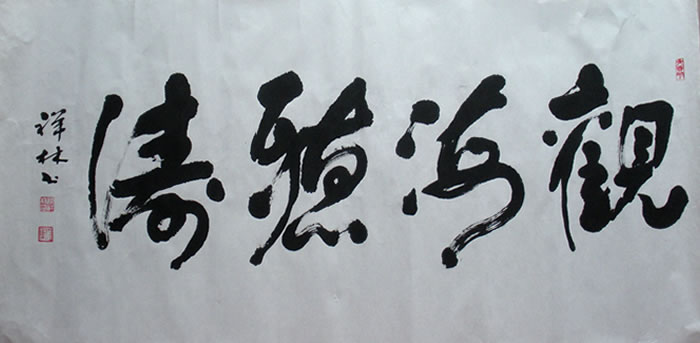 觀海聽濤
祥林书